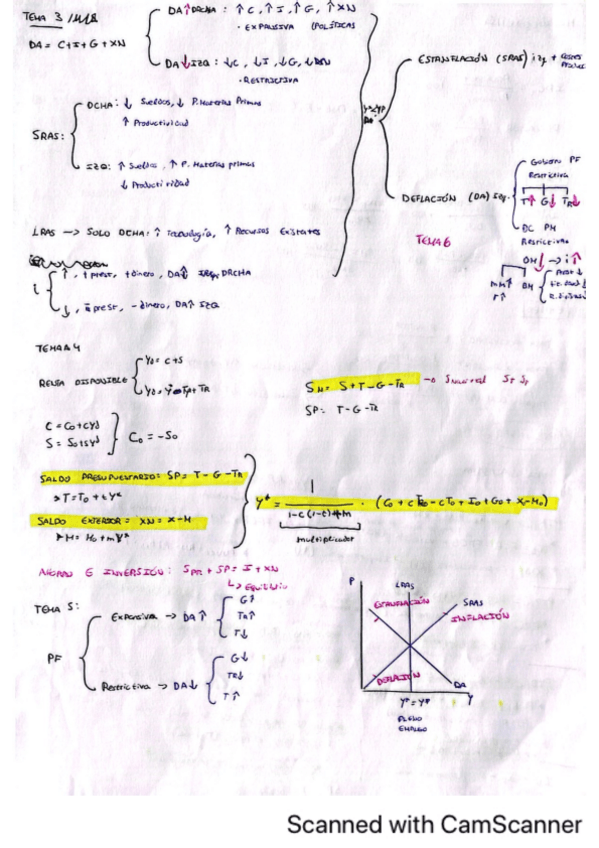 TEMA 3
DA = C+I+G+XN
DA↑ DRCHA : ↑C, ↑I, ↑G, ↑XN
· EXPANSIVA (POLÍTICAS
DA↓ IZQ : ↓C, ↓I, ↓G, ↓XN
· RESTRICTIVA
SRAS:
DCHA: ↓ Sueldos, ↓ P. Materias Primas
↑ Productividad
IZQ: ↑ Sueldos, ↑ P. Materias primas
↓ Productividad
LRAS → SOLO DCHA: ↑ Tecnología, ↑ Recursos Existentes
i
↑, + prest, + dinero, DA DRCHA
↓, prest, - dinero, DA↑ IZQ
ESTANFLACIÓN (SRAS) izq +
DEFLACIÓN (DA) izq.
Gobierno PF
Restrictiva
T↑ G↓ TR↓
BC PM
Restrictiva
OM↓ → i↑
TEMA 6
TEMA 4
RENTA DISPONIBLE
Yd = C+S
C = Co + cYd
S = So + sYd
Co = -So
SN = S+T-G-TR
SP: T-G-TR
SALDO PRESUPUESTARIO: SP = T-G-TR
T = To + tY*
SALDO EXTERIOR = XN = X-M
M = Mo + mY*
Y* = 1 / 1-c(1-t)+m · (Co + cTRo - cTo + Io + Go + X - Mo)
multiplicador
AHORRO E INVERSIÓN: Spr + SP = I + XN
↳ Equilibrio
TEMA 5:
PF
Expansiva → DA↑
G↑
TR↑
T↓
Restrictiva → DA↓
G↓
TR↓
T↑
P
LRAS
ESTANFLACIÓN
SRAS
INFLACIÓN
DEFLACIÓN
DA
Y
PLENO
EMPLEO
Scanned with CamScanner